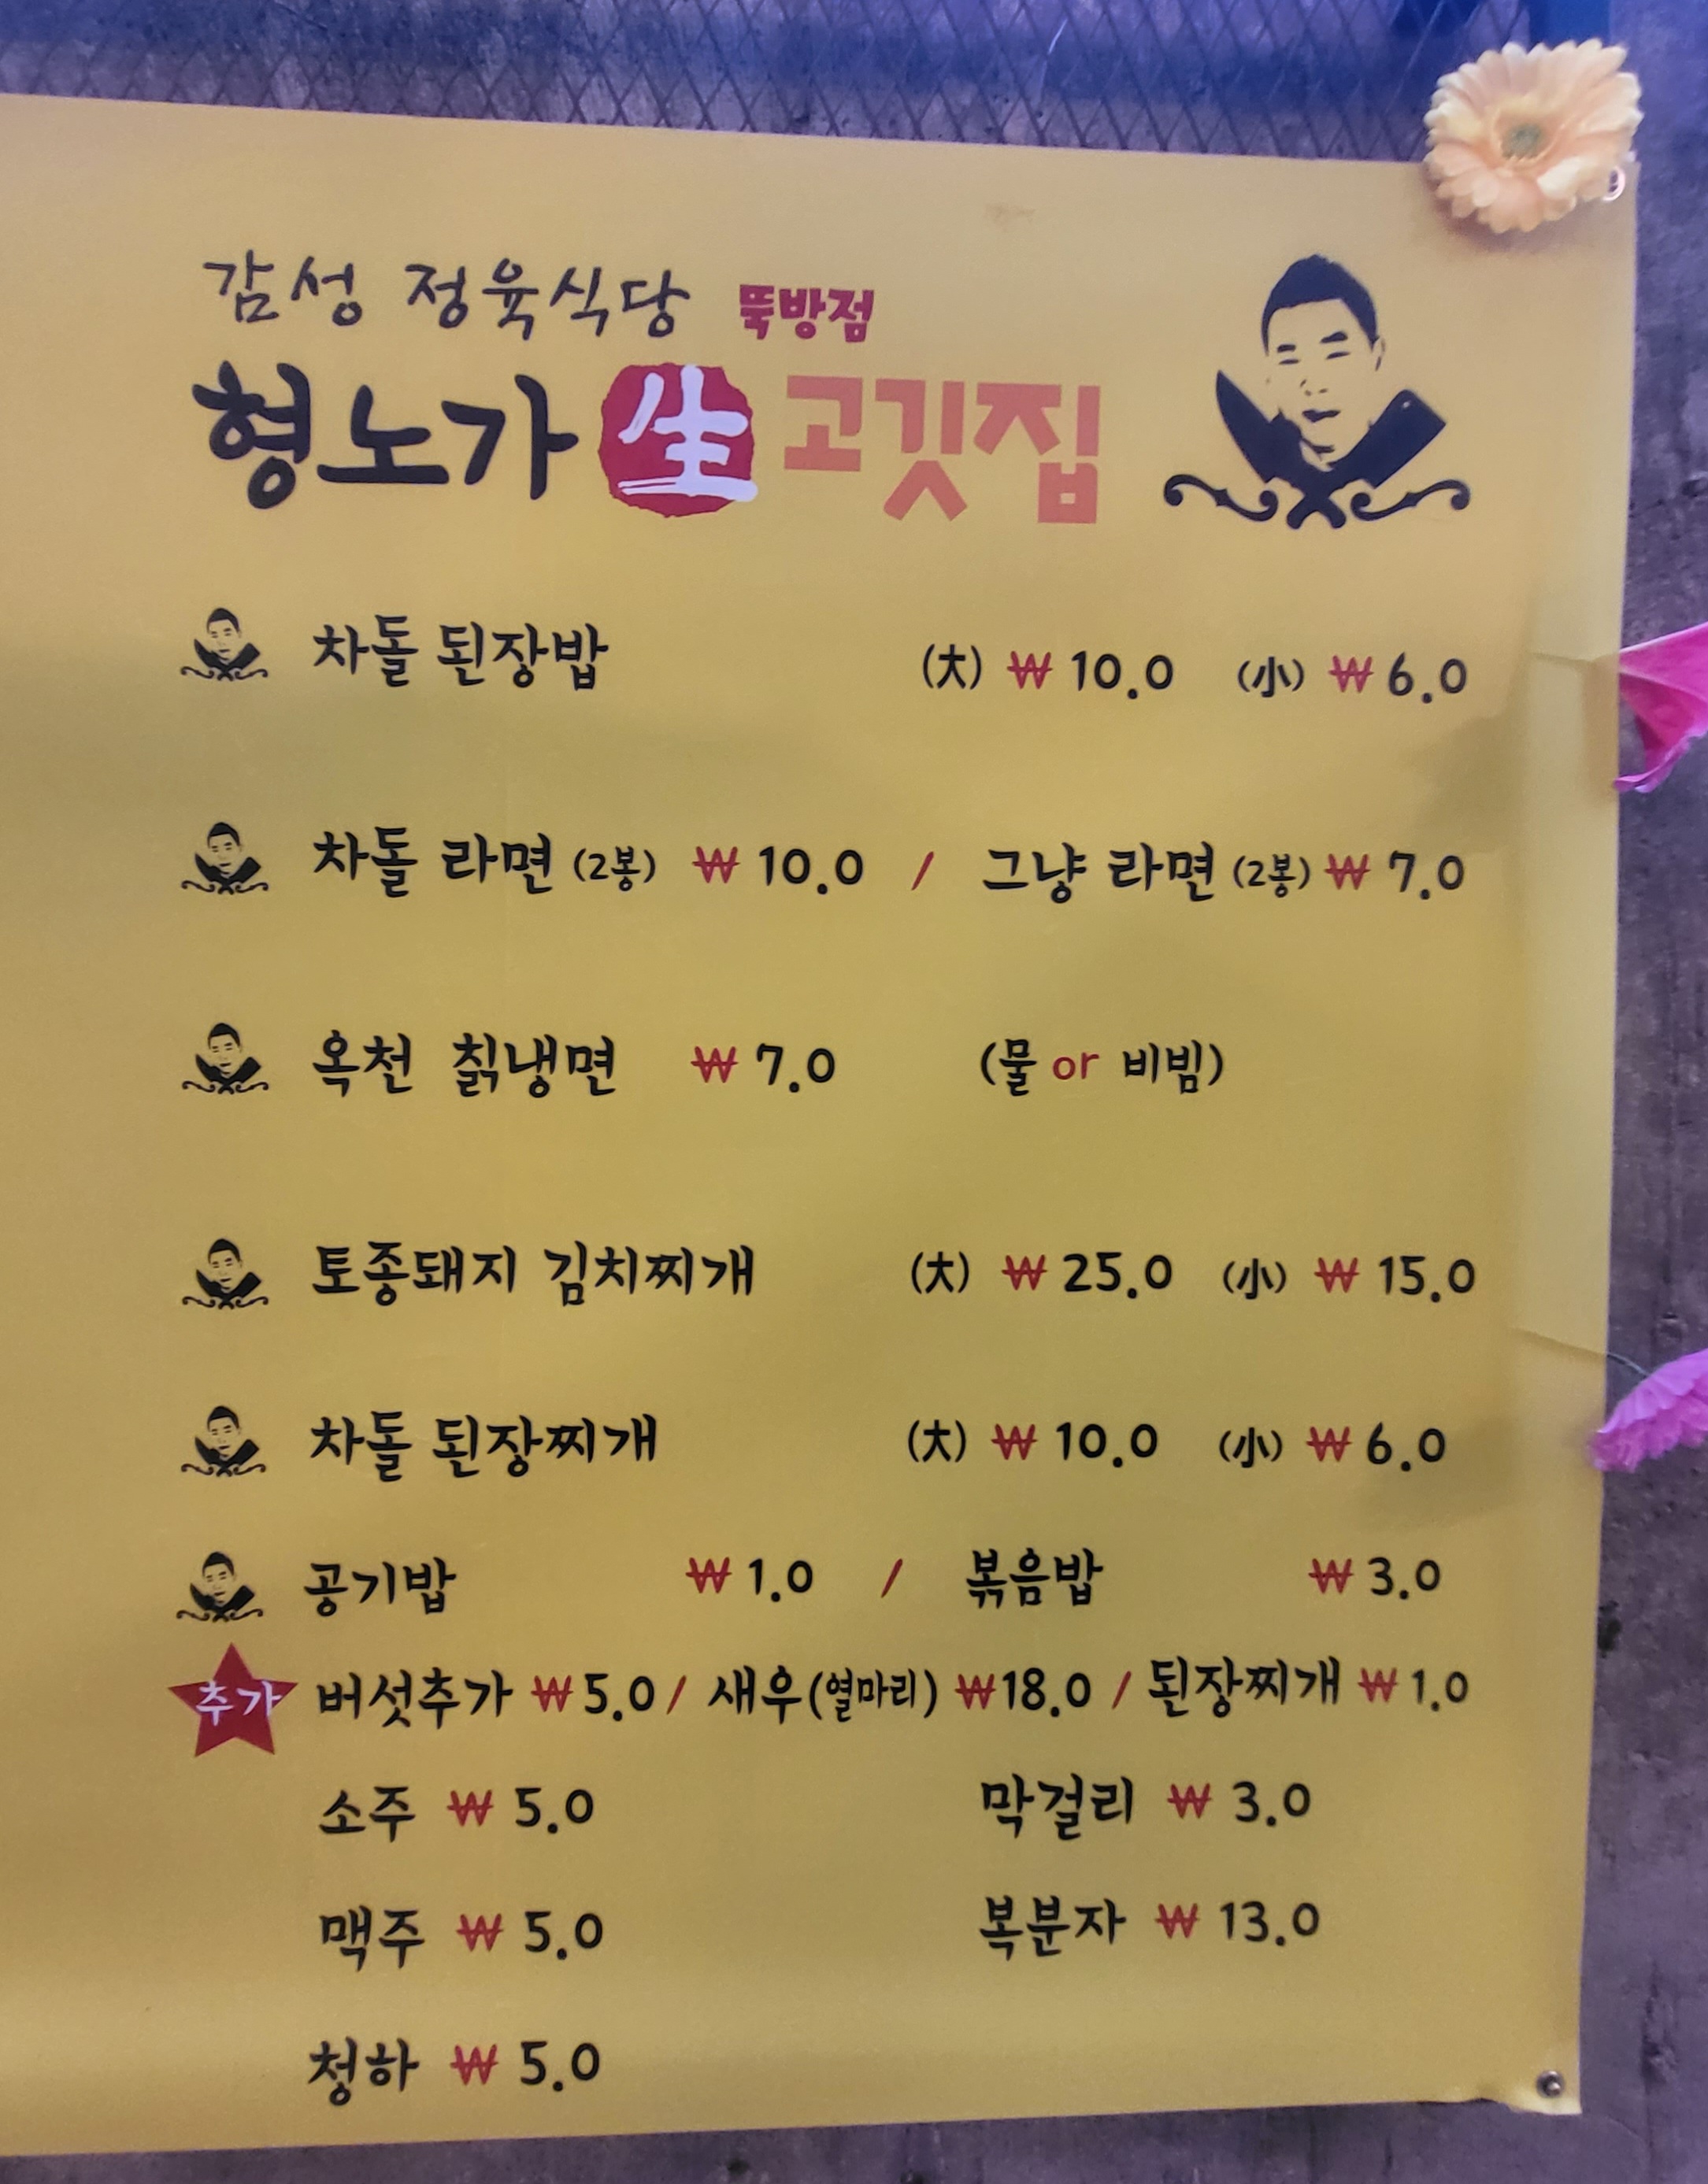 감성 정육식당 뚝방점
형노가 生 고깃집
차돌 된장밥 (大) ₩ 10.0 (小) ₩ 6.0
차돌 라면 (2봉) ₩ 10.0 / 그냥 라면 (2봉) ₩ 7.0
옥천 칡냉면 ₩ 7.0 (물 or 비빔)
토종돼지 김치찌개 (大) ₩ 25.0 (小) ₩ 15.0
차돌 된장찌개 (大) ₩ 10.0 (小) ₩ 6.0
공기밥 ₩ 1.0 / 볶음밥 ₩ 3.0
추가 버섯추가 ₩ 5.0 / 새우(열마리) ₩ 18.0 / 된장찌개 ₩ 1.0
소주 ₩ 5.0 막걸리 ₩ 3.0
맥주 ₩ 5.0 복분자 ₩ 13.0
청하 ₩ 5.0